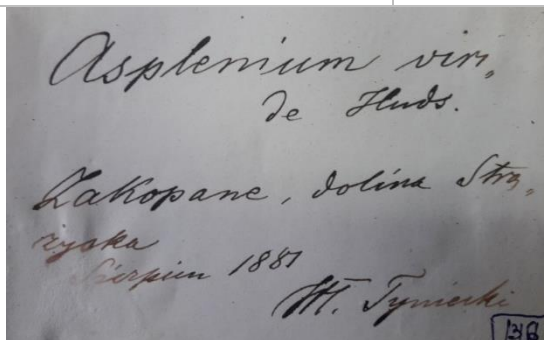 Asplenium viri„
de Huds.
Zakopane, dolina Strą„
żyska
Sierpień 1881
Wł. Tyniecki
136